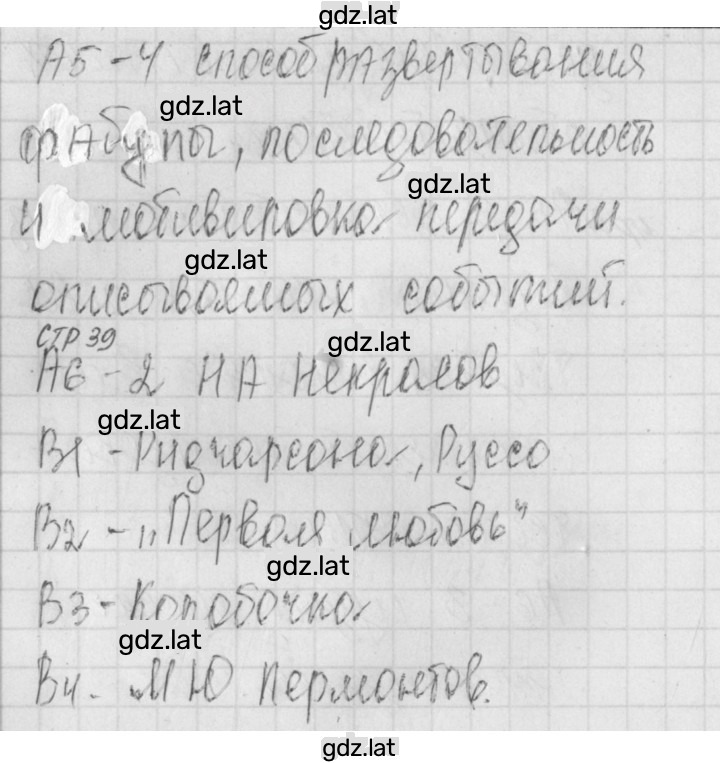 gdz.lat
А5-4 способ развертывания
gdz.lat
фАбулы, последовательность
gdz.lat
и мотивировка передачи
gdz.lat
описываемых событий.
стр 39
gdz.lat
А6-2 НА Некрасов
gdz.lat
В1-Ридчарсона, Руссо
В2-„Первая любовь"
gdz.lat
В3-Коробочка
gdz.lat
В4. М Ю Лермонтов.
gdz.lat